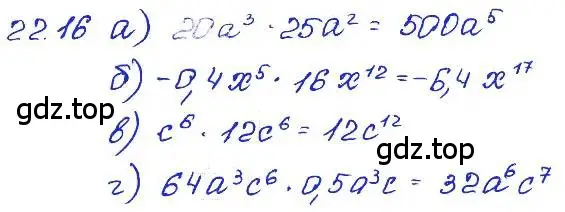 22.16 а) 20a³ · 25a² = 500a⁵
б) -0,4x⁵ · 16x¹² = -6,4x¹⁷
gdz.top
в) c⁶ · 12c⁶ = 12c¹²
gdz.top
г) 64a³c⁶ · 0,5a³c = 32a⁶c⁷